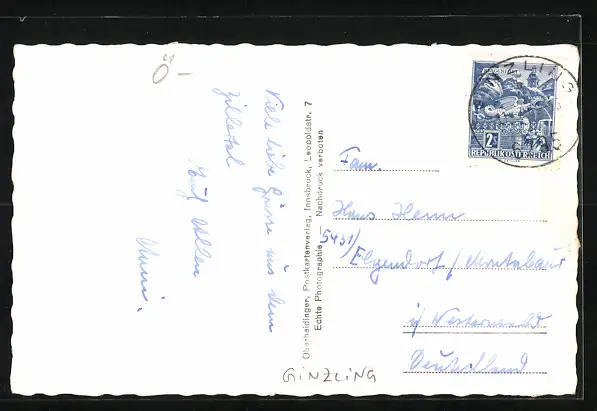 Ö-
Viele liebe Grüsse aus dem
Zillertal
Mimi.
Oberhaidinger, Postkartenverlag, Innsbruck, Leopoldstr. 7
Echte Photographie — Nachdruck verboten
2S
REPUBLIK ÖSTERREICH
GINZLING
Fam.
Hans Henn
5431/
Elgendorf / Montabaur
i/ Westerwald
Deutschland
GINZLING